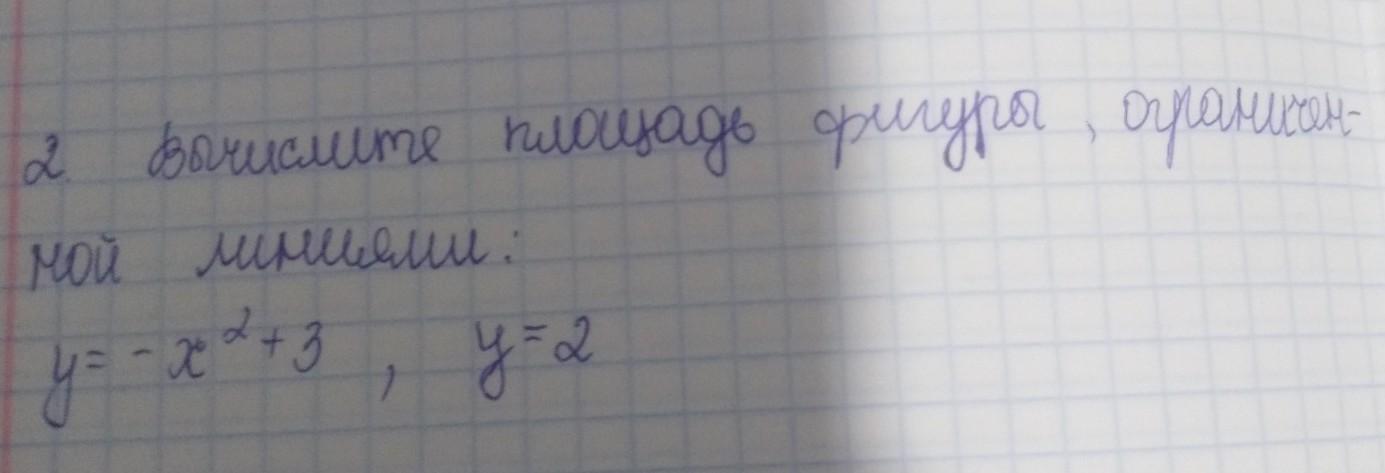 2. Вычислите площадь фигуры, ограничен-
ной линиями:
y = -x² + 3, y = 2